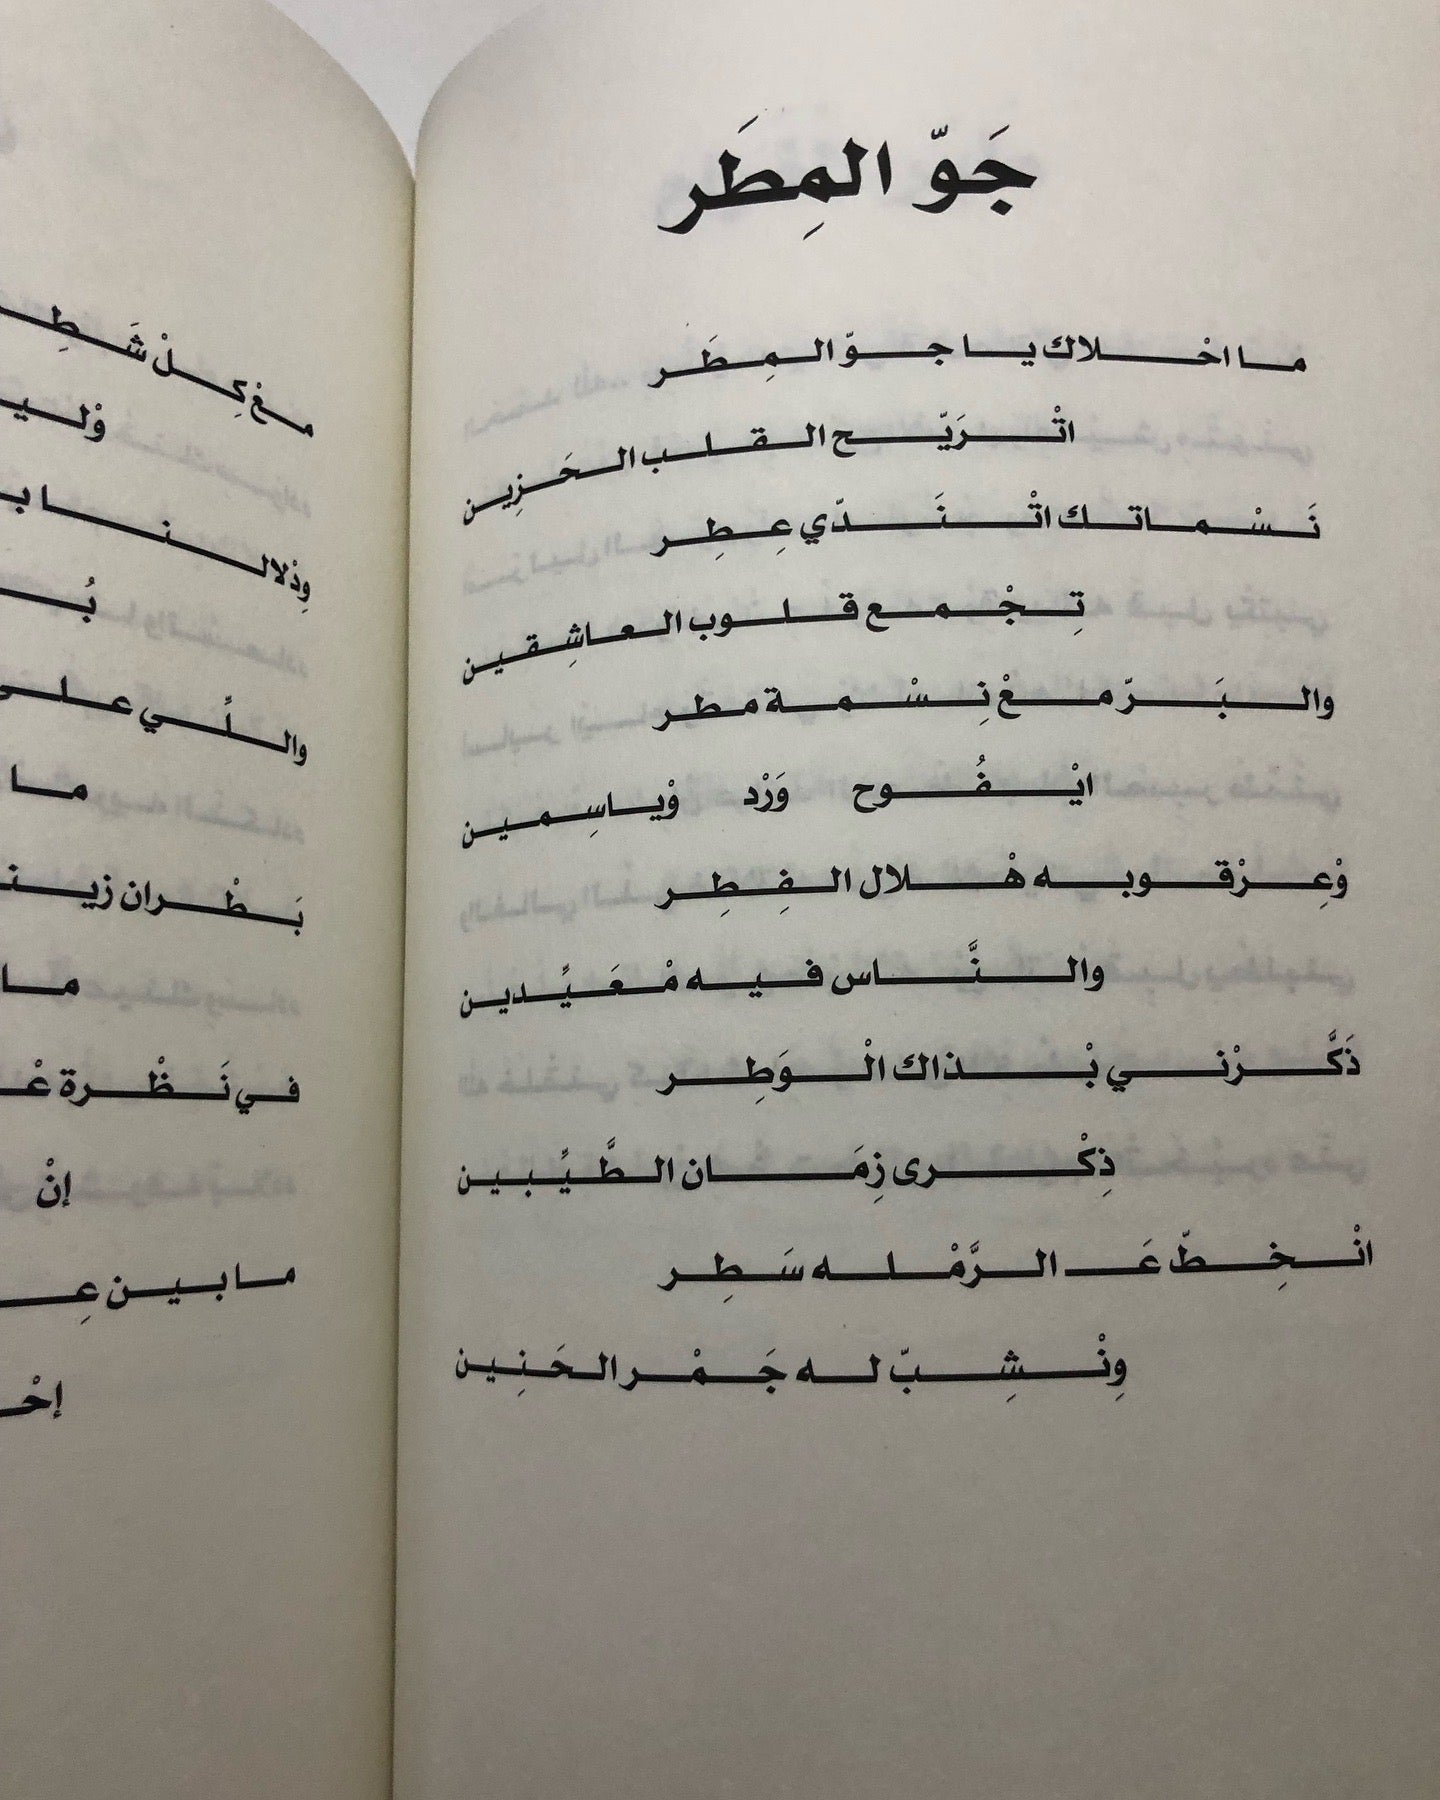 جَوّ المِطَر
ما احْلاك يا جوّ المِطَر
اتْرَيّح القلب الحَزِين
نَسْماتك اتْنَدّي عِطِر
تِجْمع قلوب العاشِقين
والبَرّ معْ نِسْمة مطر
ايْفُوح وَرْد وْياسِمين
وْعِرْقوبه هْلال الفِطِر
والنَّاس فيه مْعَيِّدين
ذَكَّرْني بْذاك الْوَطِر
ذِكْرى زِمَان الطَّيِّبين
انْخِطّ عَـ الرَّمْله سَطِر
وِنْشِبّ له جَمْر الحَنِين
مِعْ كِلْ شَطِـ
وْليـ
وِدْلالنا بـ
بُـ
واللِّي على
ما
بَطْران زينـ
ما
في نَظْرة عْـ
إنْ
ما بين عِـ
إحْـ